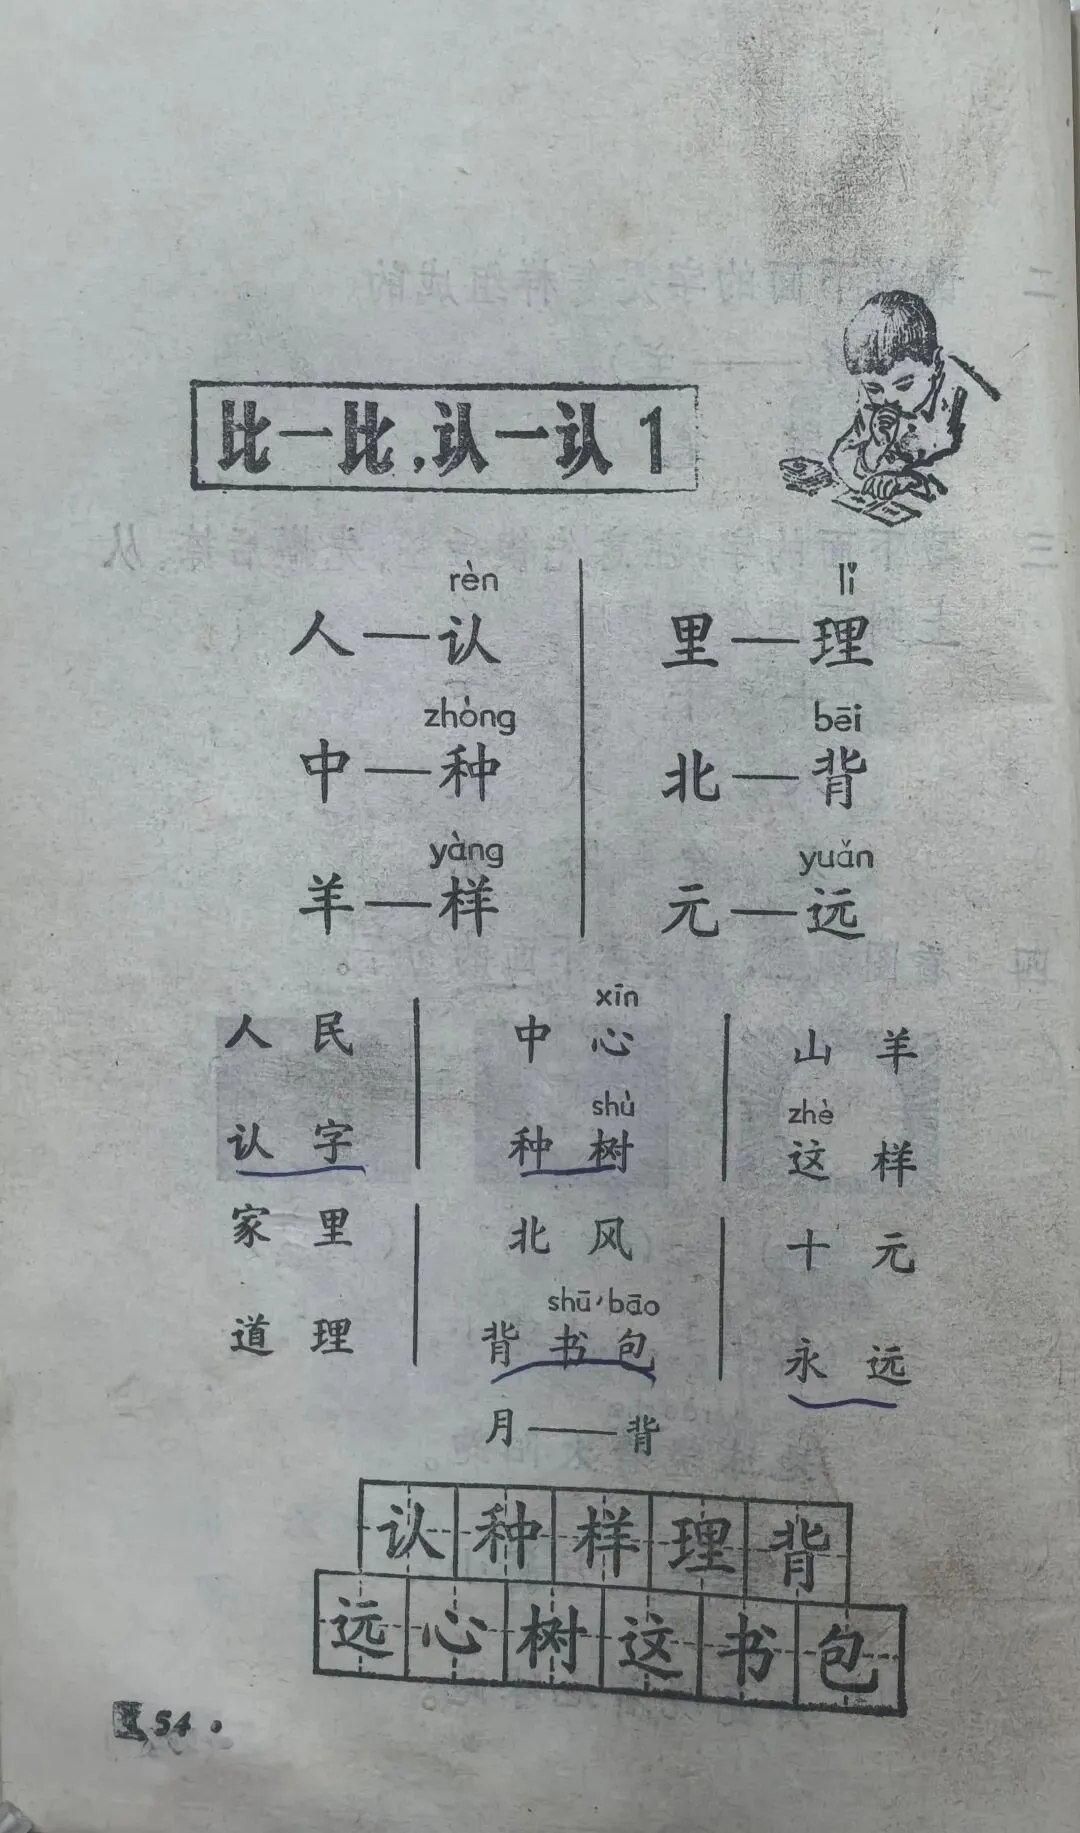 比一比,认一认 1
rèn lǐ
人—认 里—理
zhòng bēi
中—种 北—背
yàng yuǎn
羊—样 元—远
xīn
人民 中心 山羊
shù zhè
认字 种树 这样
家里 北风 十元
shū bāo
道理 背书包 永远
月——背
认种样理背
远心树这书包
54